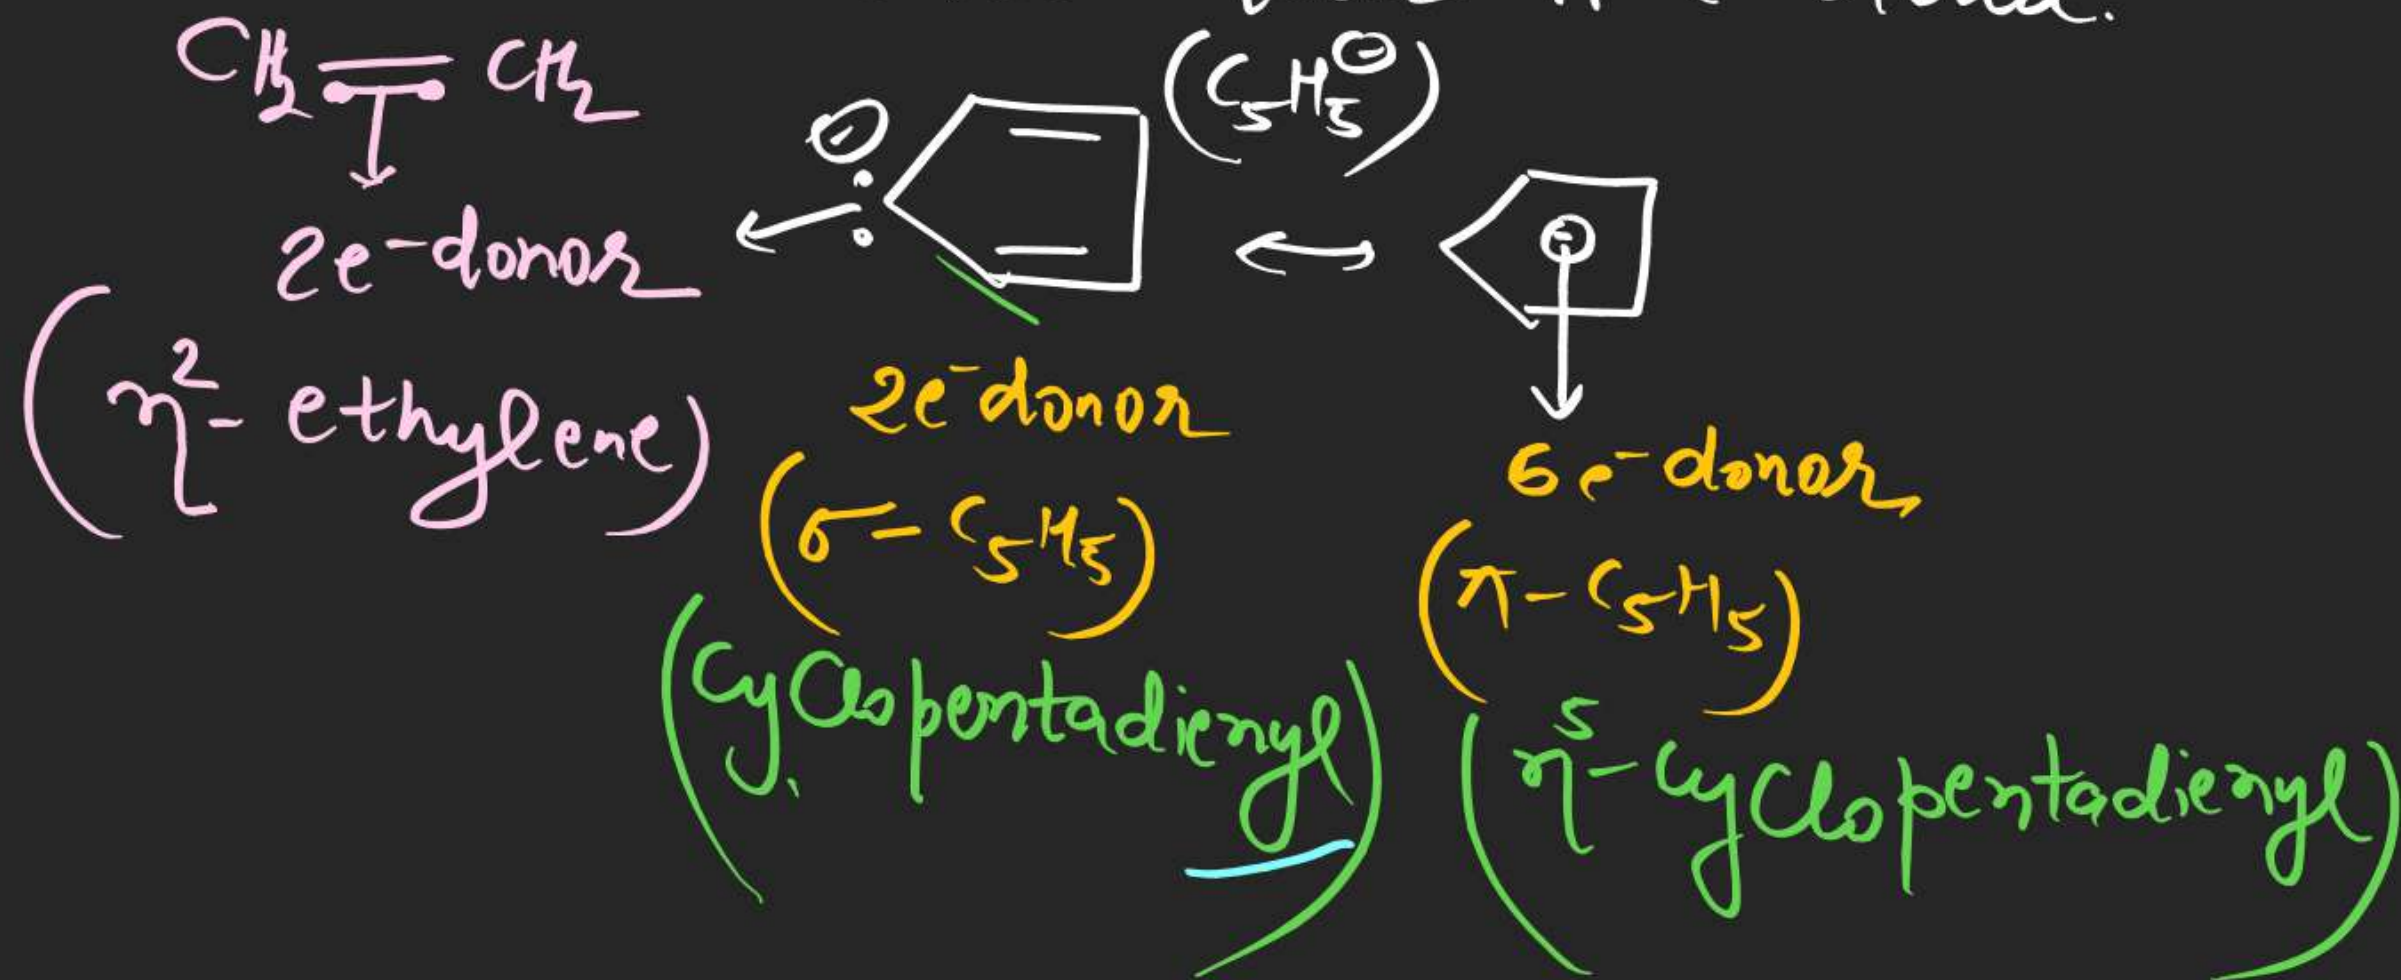 CH₂=CH₂
2e⁻donor
(η²-ethylene)
⊖
(C₅H₅⊖)
2e⁻donor
(σ-C₅H₅)
(Cyclopentadienyl)
⊖
6e⁻donor
(π-C₅H₅)
(η⁵-cyclopentadienyl)